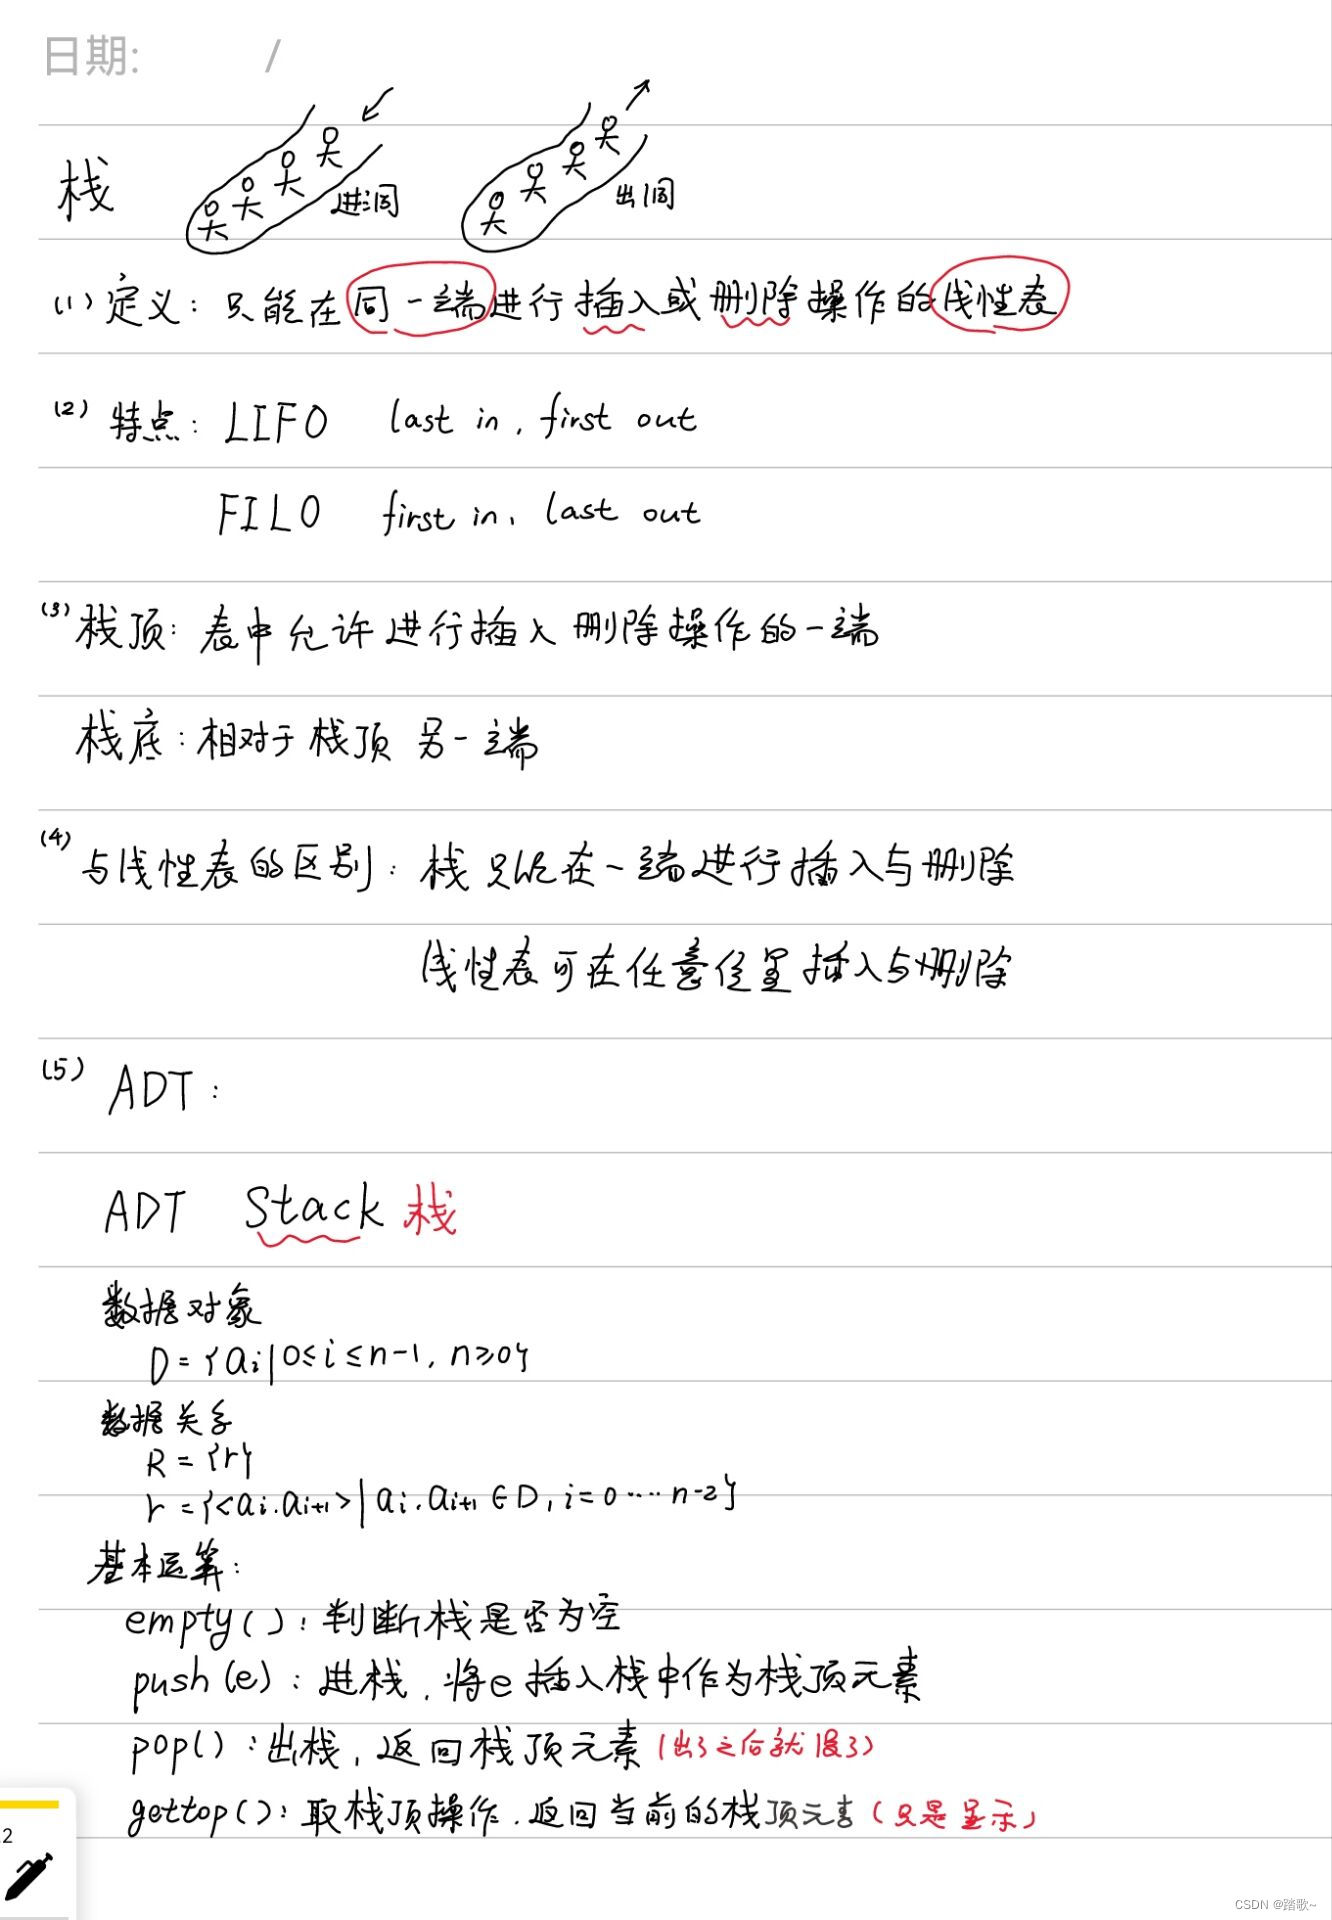 日期: /
栈 进洞 出洞
(1) 定义: 只能在同一端进行插入或删除操作的线性表
(2) 特点: LIFO last in, first out
FILO first in, last out
(3) 栈顶: 表中允许进行插入删除操作的一端
栈底: 相对于栈顶另一端
(4) 与线性表的区别: 栈只能在一端进行插入与删除
线性表可在任意位置插入与删除
(5) ADT:
ADT Stack 栈
数据对象
D={ai|0≤i≤n-1, n≥0}
数据关系
R={r}
r={<ai,ai+1>|ai,ai+1∈D, i=0……n-2}
基本运算:
empty(): 判断栈是否为空
push(e): 进栈, 将e插入栈中作为栈顶元素
pop(): 出栈, 返回栈顶元素(出了之后就没了)
gettop(): 取栈顶操作, 返回当前的栈顶元素(只是显示)
2
CSDN @踏歌~